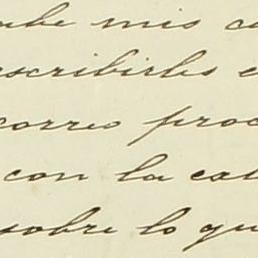 mis
escribirles
correo proc
con la cal
sobre lo qu